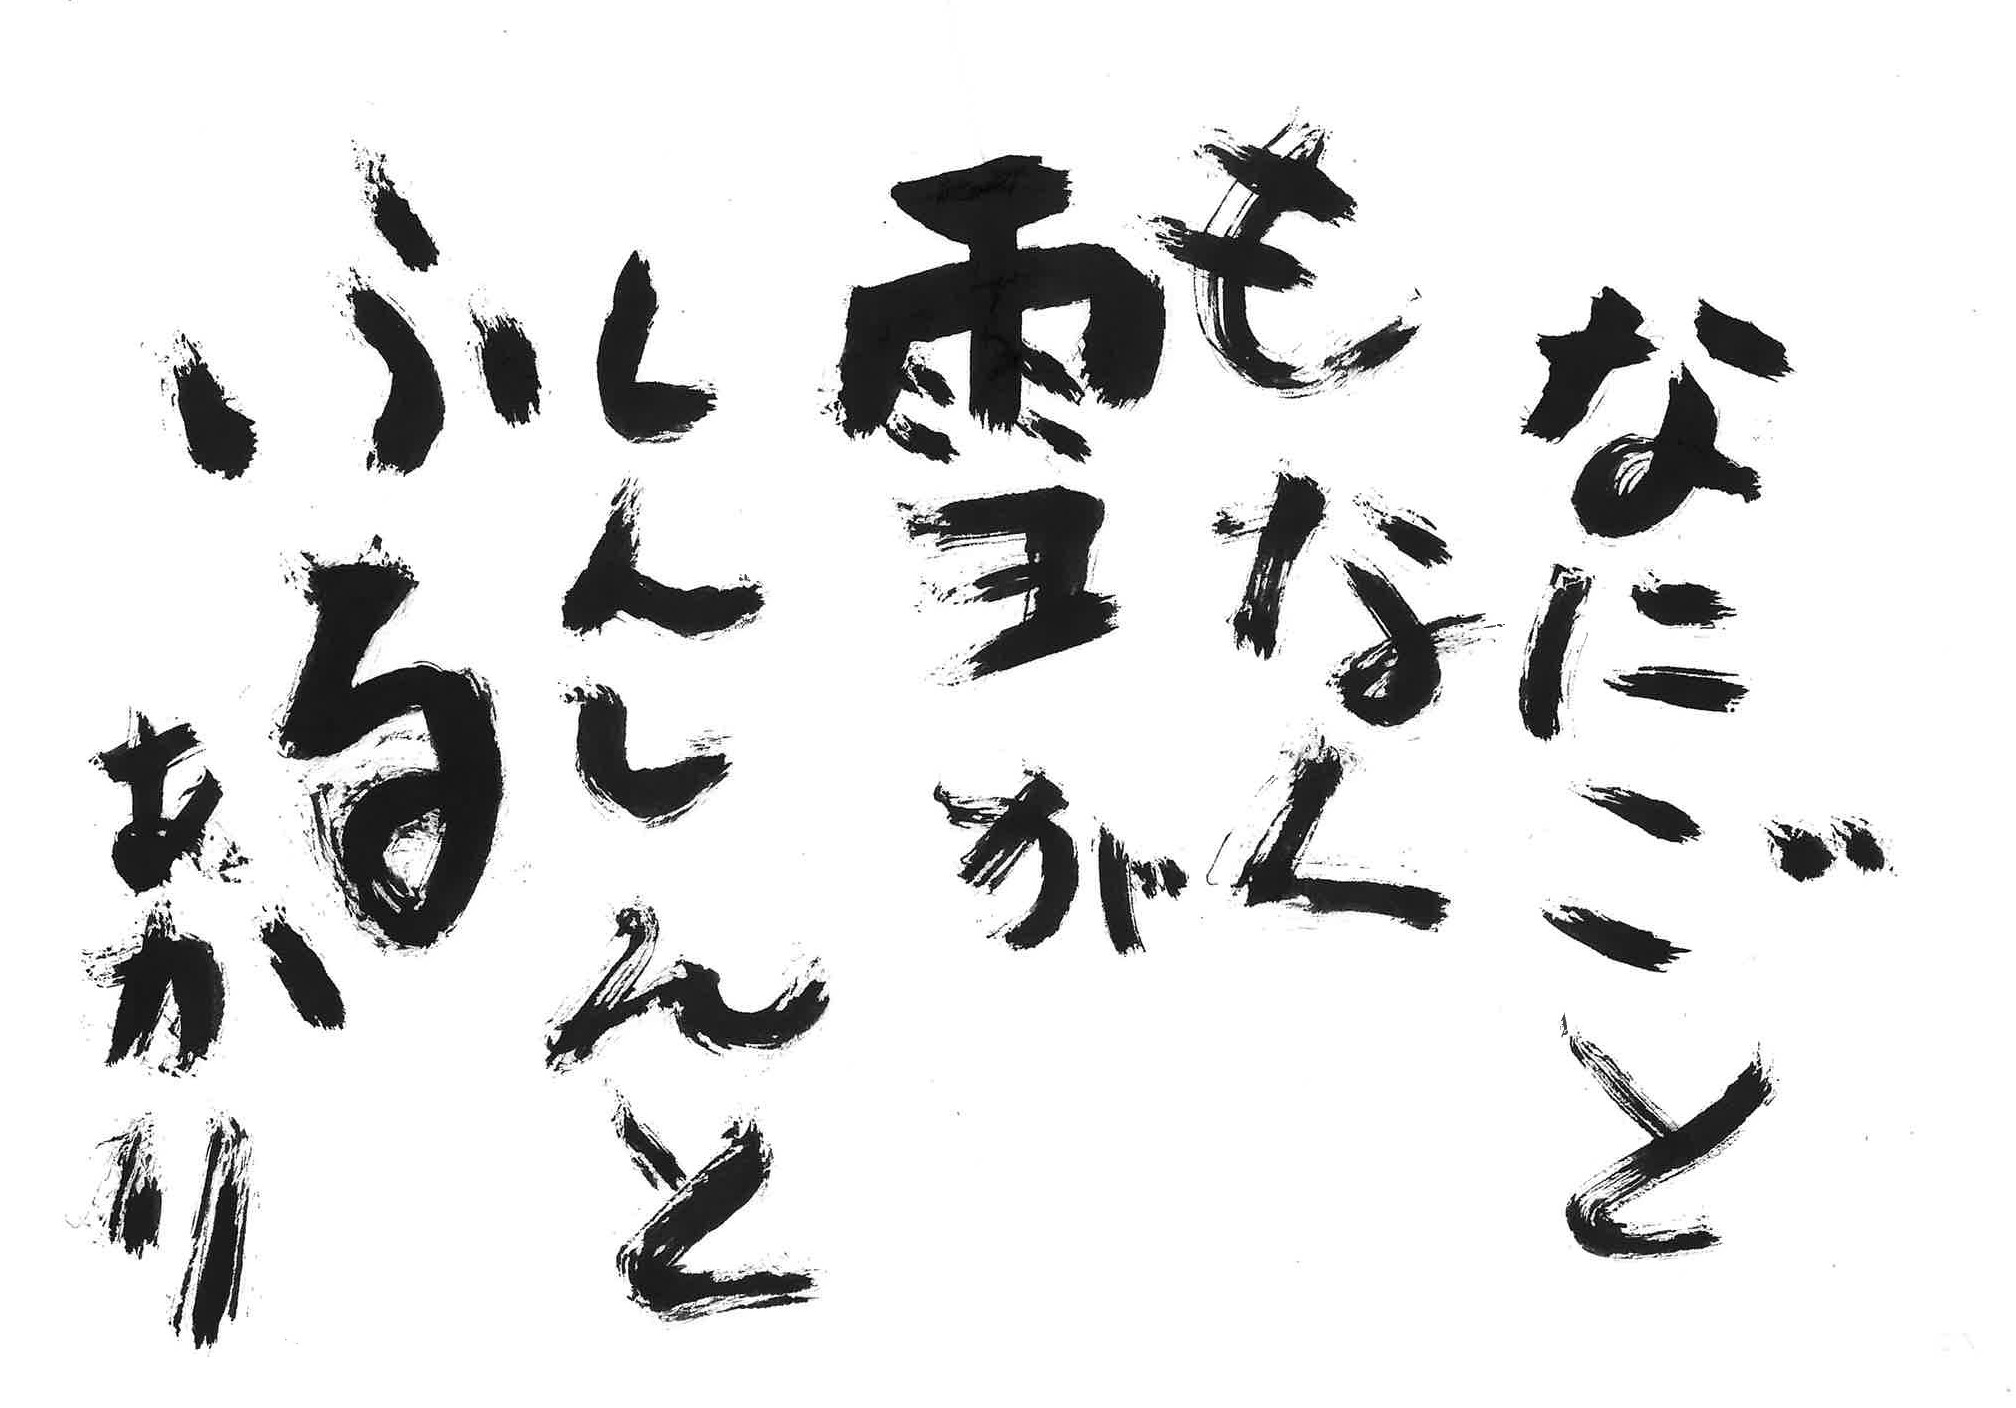 なにごと
もなく
雪が
しんしんと
ふる
あかり